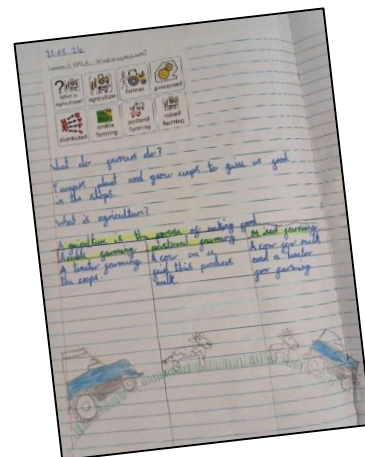 what is agriculture?
agriculture
farmer
processed
distributed
arable farming
pastoral farming
mixed farming
What do farmers do?
Farmers plant and grow crops to give us food
in the shops.
What is agriculture?
Agriculture is the process of making food
Arable farming pastoral farming Mixed farming
A tracter farming
the crops.
A cow on a
and this produces
milk
A cow for milk
and a tracter
for farming